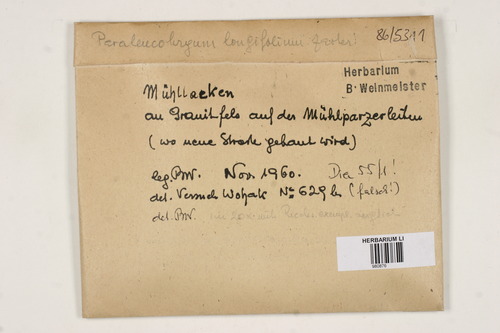 Paraleucobryum longifolium
86/5311
Herbarium
B. Weinmeister
Mühllacken
an Granitfels auf der Mühlparzerleiten
(wo neue Strasse gebaut wird)
leg. BW. Nov. 1960. Dia 55/1!
det. Wohak No 629 b (falsch!)
det. BW.
HERBARIUM LI